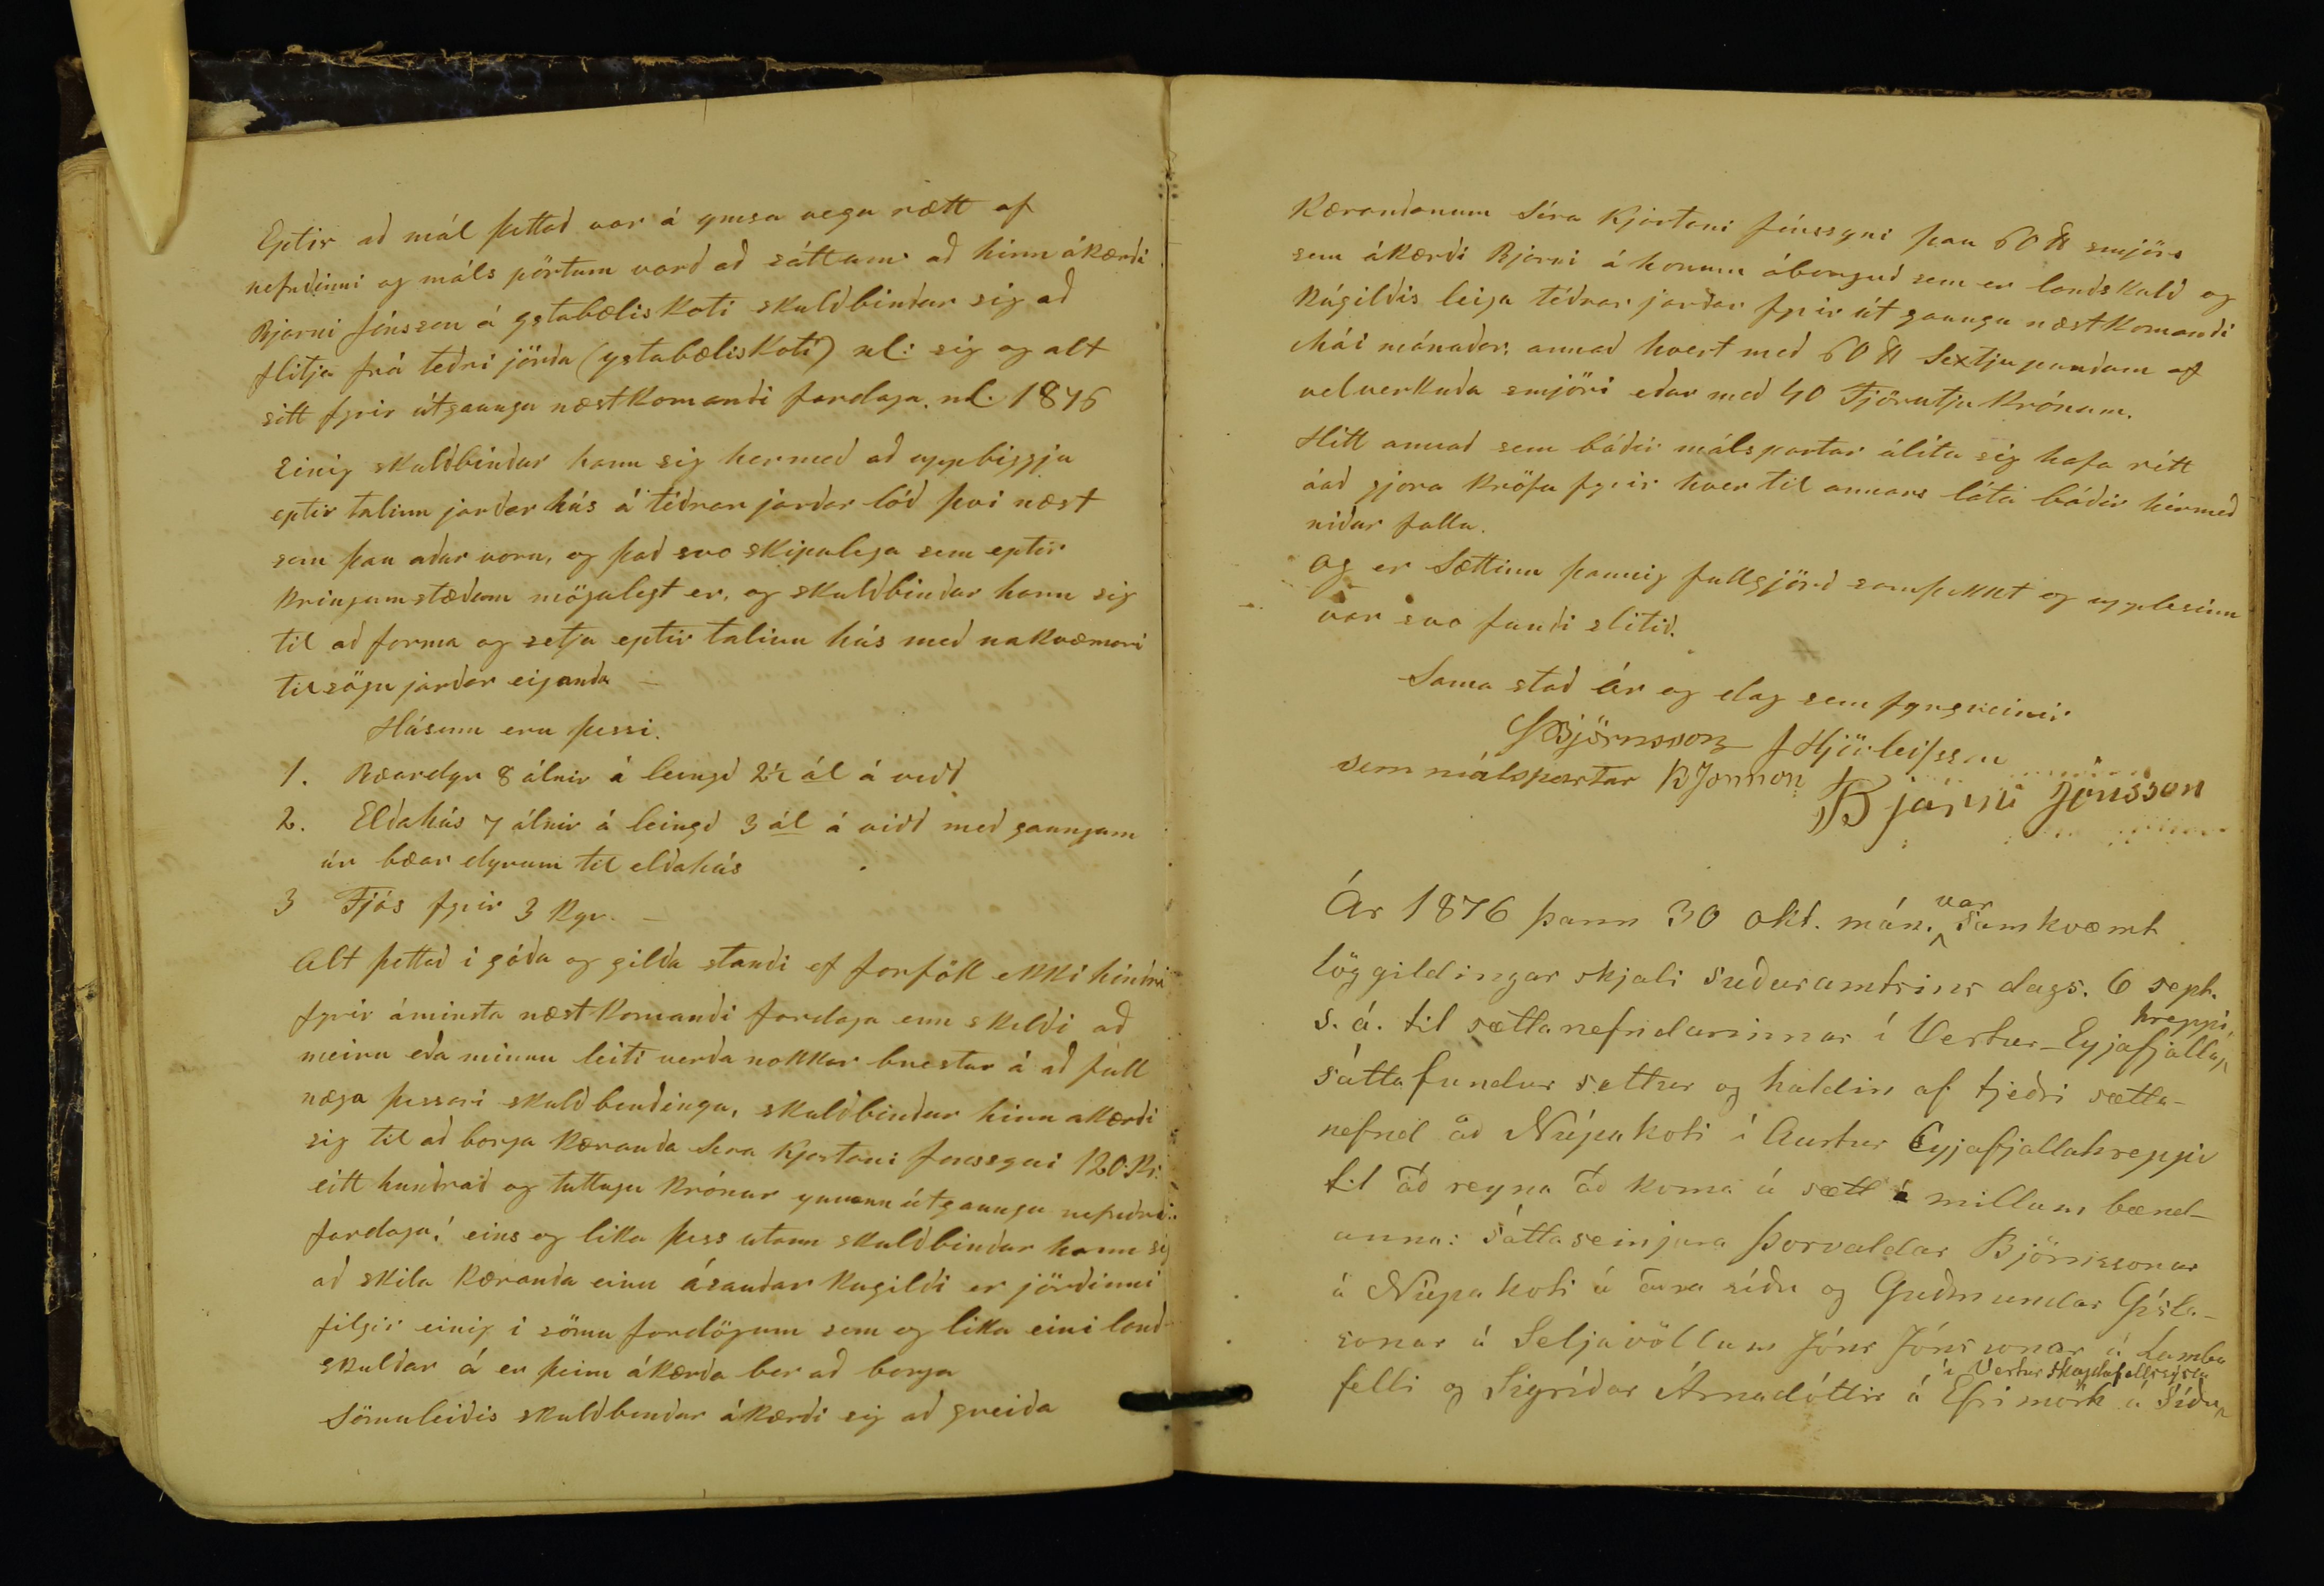 Eptir að mál þettað var á ymsa vegu rætt af
nefndinni og máls pörtum varð að sáttum að hinn ákærði
Bjarni Jónsson á ystabæliskoti skuldbindur sig að
flitja frá teðri jörðu (ystabæliskoti) nl: sig og alt
sitt fyrir útgaungu næstkomandi fardaga. nl. 1876
Einig skuldbindur hann sig hermeð að uppbiggja
eptir talinn jarðar hús á téðrar jarðar lóð því næst
sem þau aður voru, og það svo skipulega sem eptir
kringumstæðum mögulegt er, og skuldbindur hann sig
til að forma og setja eptir talinn hús með nakvæmari
tilsögn jarðar eiganda —
Húsinn eru þessi.
1. Bæardyr 8 álnir á leingd 2½ ál á vidd
2. Eldahús 7 álnir á leingd 3 ál á vidd með gaungum
úr bæar dyrum til eldahús
3 Fjós fyrir 3 kyr. —
Alt þettað i góðu og gildu standi ef forföll ekki hindra
fyrir áminsta næstkomandi fardaga enn skildi að
meiru eða minnu leiti verða nokkur brestur á að full
nægja þessari skuldbindingu, skuldbindur hinn akærði
sig til að borga kæranda Sera Kjartani Jonssyni 120 Kr.
eitt hundrað og tuttugu krónur innann útgaungu nefndra
fardaga! eins og lika þess utann skuldbindur hann sig
að skila kæranda einu ásauðar kugildi er jörðinni
filgir einig i sömu fardögum som og lika eini land-
skuldar á er þeim ákærða ber að borga
Sömuleiðis skuldbindur ákærði sig að greiða
Kærandanum Séra Kjartani Jónssyni þau 60 ℔ smjörs
sem ákærði Bjarni á honum óborguð sem er landskuld og
kúgildis leiga téðrar jarðar fyrir út gaungu næstkomandi
Mái mánaðar, annað hvert með 60 ℔ Sextjupundum af
velverkuðu smjöri eður með 40 Fjörutju krónum.
Hitt annað sem báðir málspartar álita sig hafa rétt
áað gjöra kröfu fyrir hver til annars láta báðir hérmeð
niður falla.
og er Sættinn þannig fullgjörð samþykkt og upplesinn
var svo fundi slitið.
Sama stað ár og dag sem fyrgreinir
ÞBjörnsson J Hjörleifsson
sem málspartar KJonsson Bjarni Jónsson
Ár 1876 þann 30 okt. mán. var samkvæmt
löggildingar skjali suðuramtsins dags. 6 sept.
s. á. til sættanefndarinnar í Vestur-Eyjafjalla hreppi,
sáttafundur settur og haldin af tjeðri sætta-
nefnd að Núpakoti í Austur Eyjafjallahreppi
til að reyna að koma á sætt á millum bænd-
anna: sáttaseinjara Þorvaldar Björnssonar
á Núpakoti á aðra síðu og Guðmundar Gísla-
sonar á Seljavöllum Jóns Jónssonar á Lamba
felli og Sigríðar Árnadóttir á Efrimörk á Síðu í Vestur skaptafellssýslu